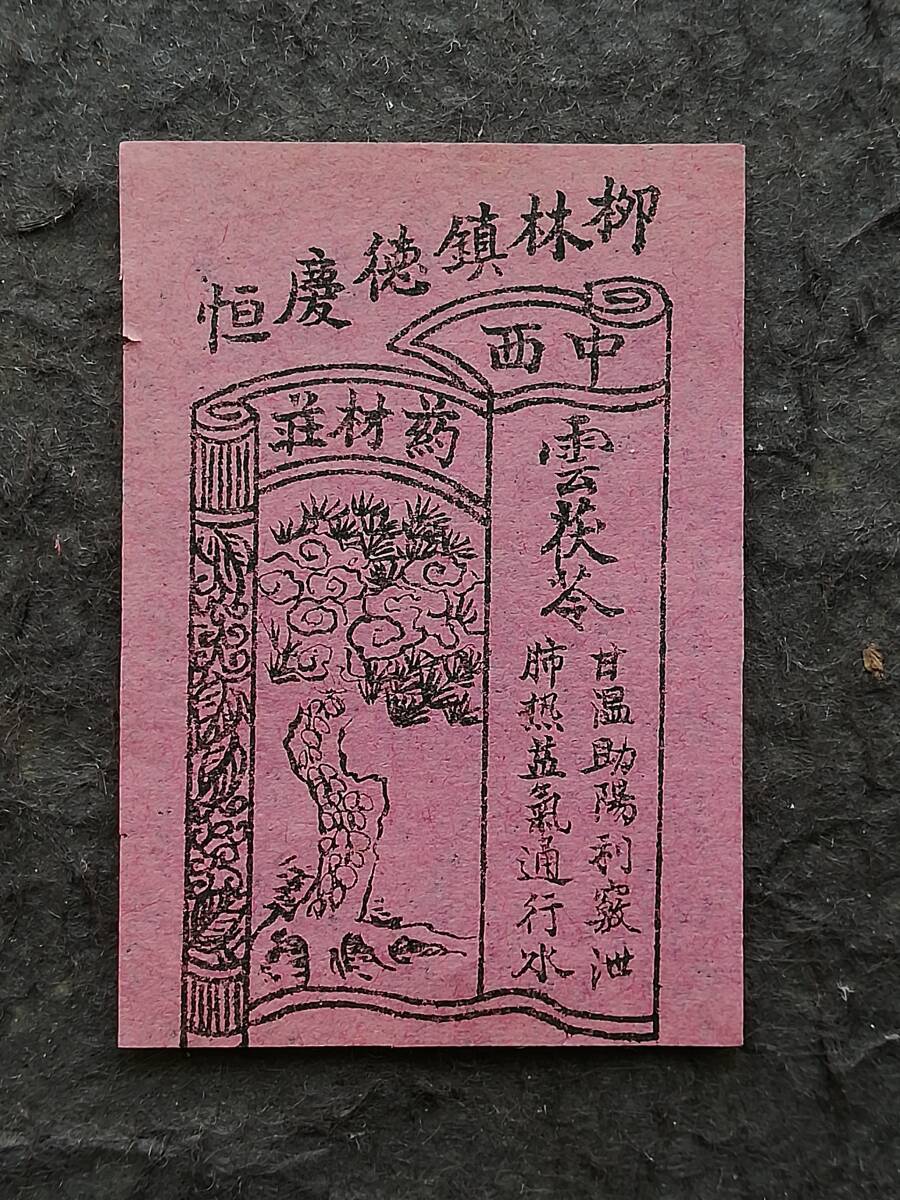 柳林鎮德慶恒
中西
药材莊
雲茯苓
甘溫助陽利竅泄
肺热益氣通行水